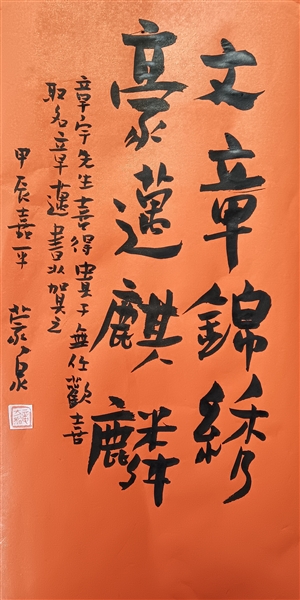 文章錦绣
豪邁麒麟
章宇先生喜得貴子無任歡喜
取名章邁書以賀之
甲辰嘉平